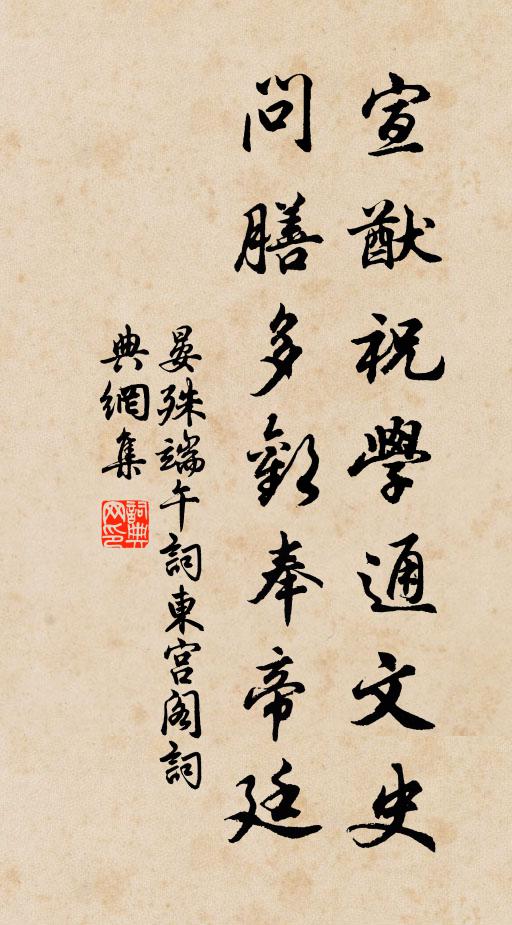 宣猷祝學通文史
問膳多歡奉帝廷
晏殊端午詞東宫阁詞
典網集
詞典网印